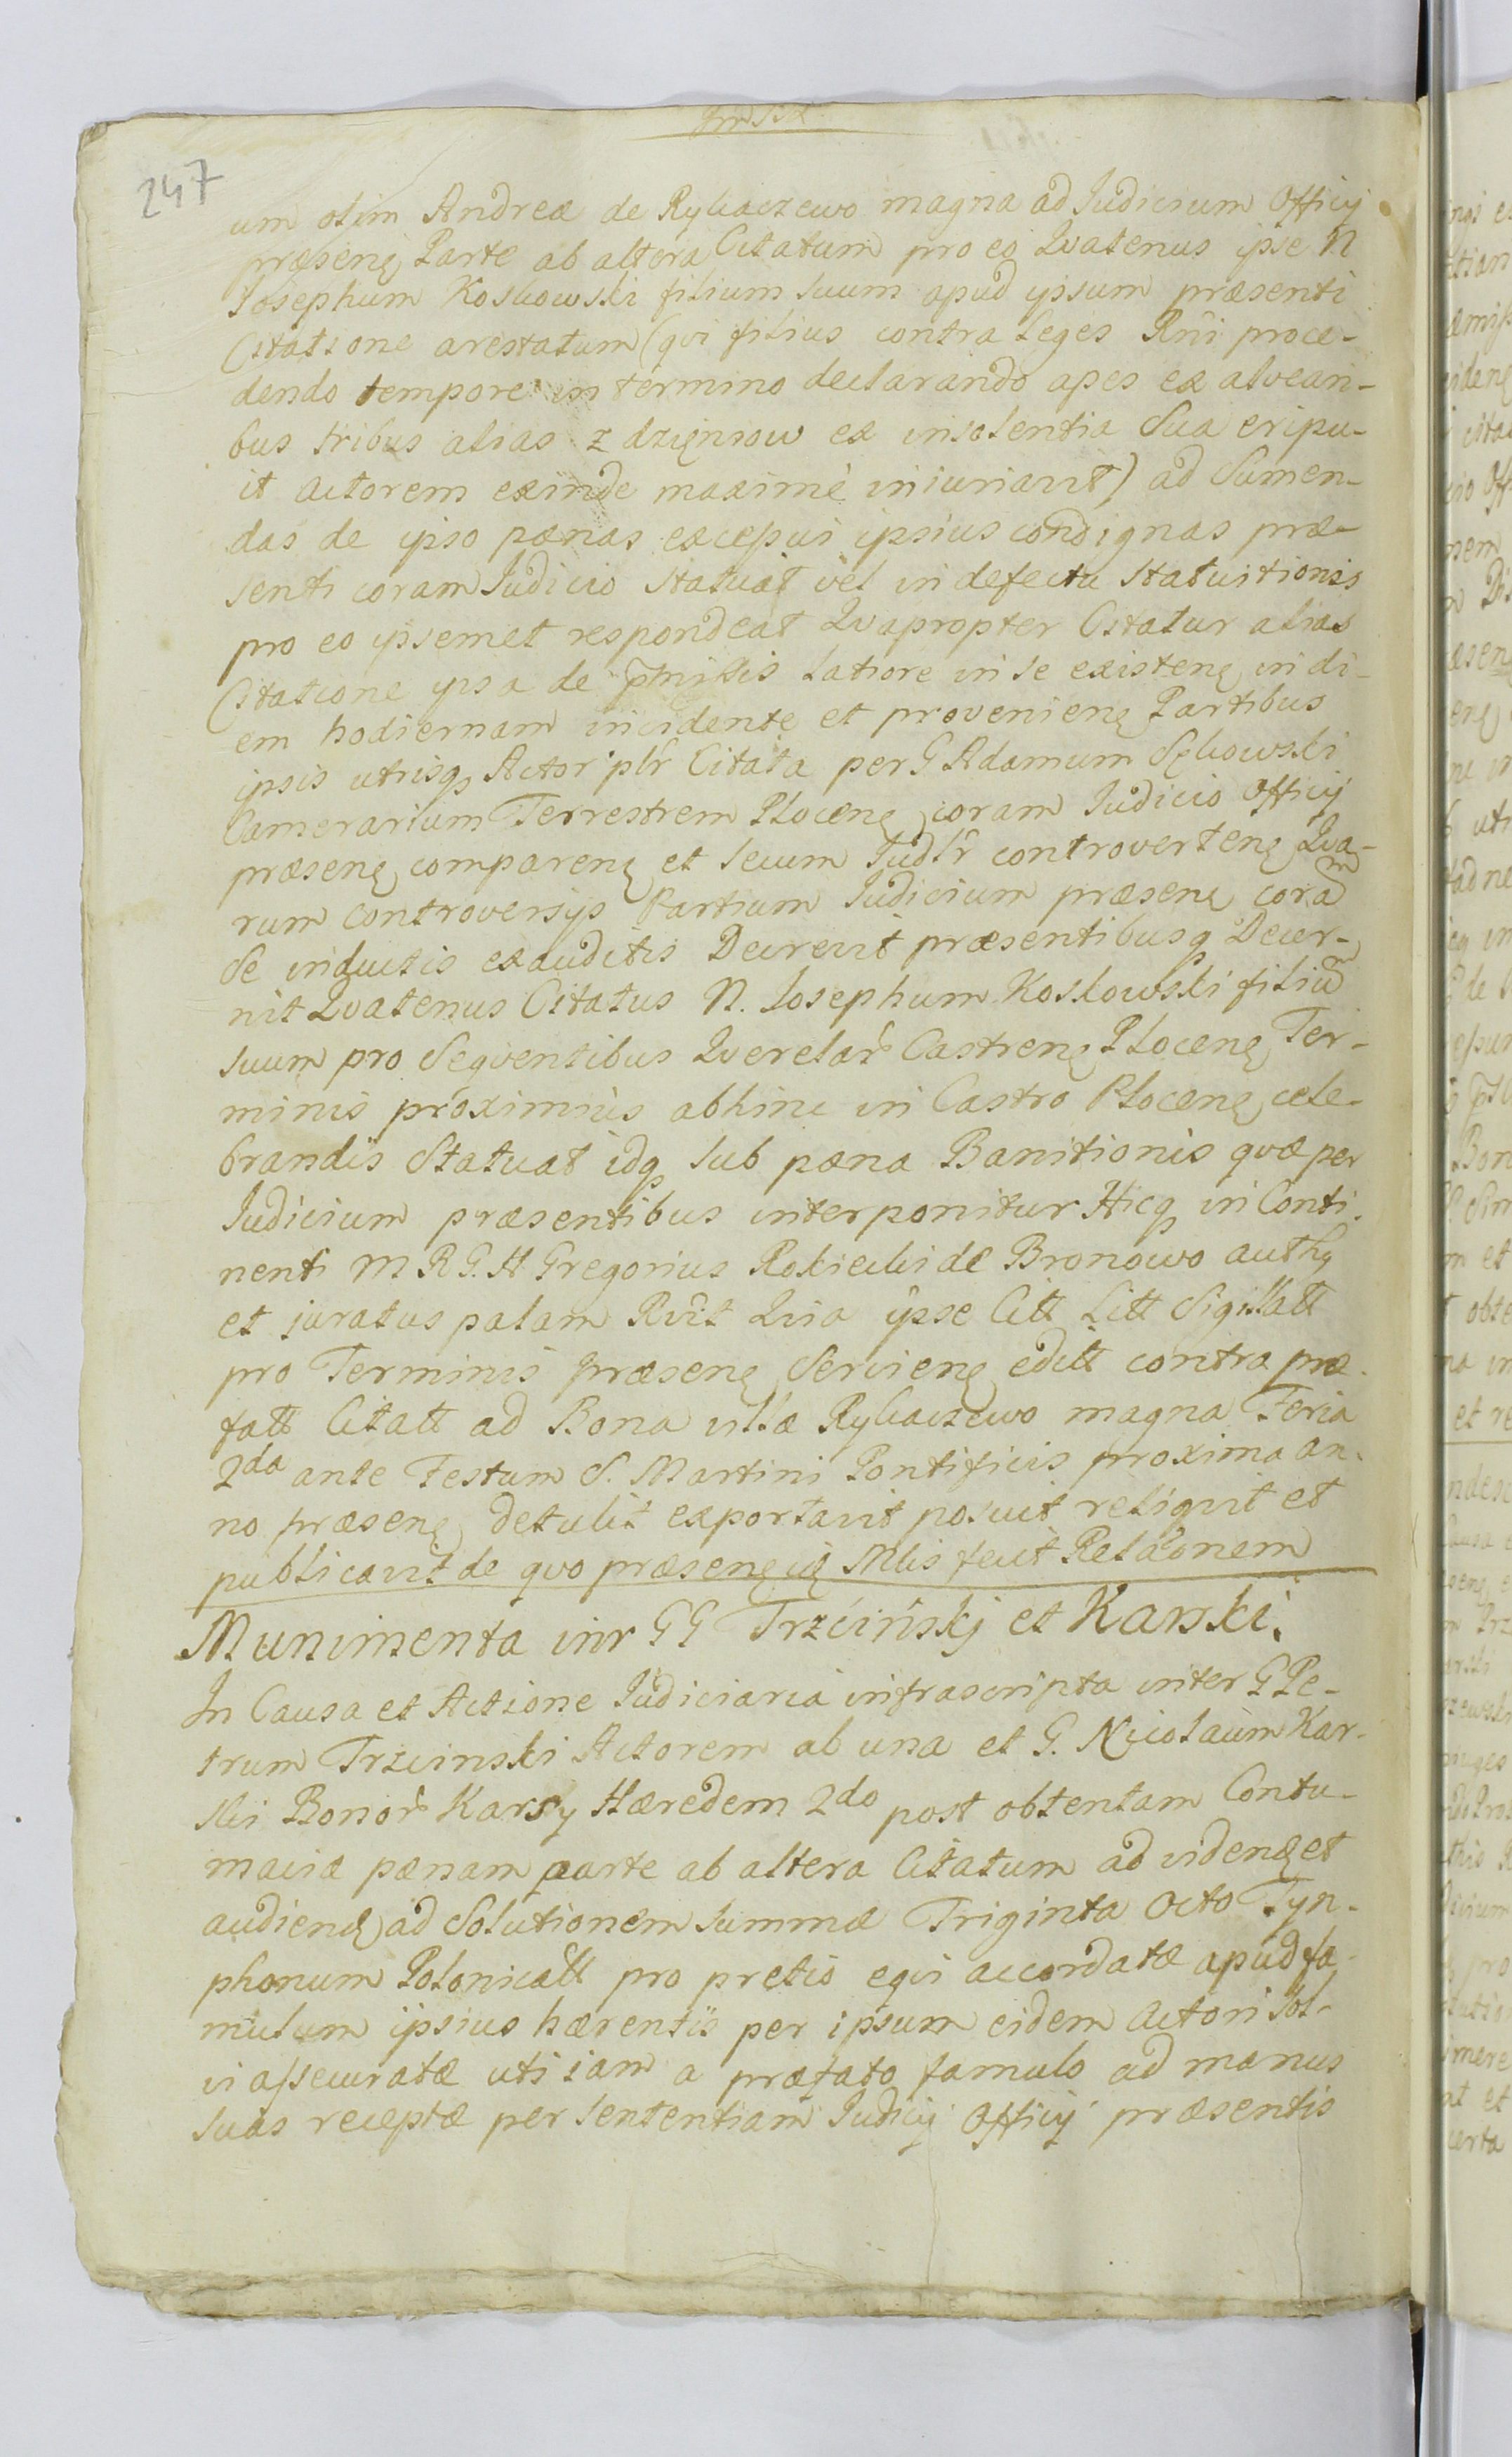 247
um olim Andreæ de Rybaczewo magna ad Judicium Officij
præsenę Parte ab altera Citatum pro eo Qvatenus ipse N
Josephum Koskowski filium suum apud ipsum præsenti
Citatione arestatum (qvi filius contra Leges Rñi proce-
dendo tempore in termino declarando apes ex alveari-
bus tribus alias z dzięniow ex insolentia Sua eripu-
it actorem exinde maximè iniuriavit) ad Sumen-
das de ipso pænas excessui ipsius condignas præ-
senti coram Judicio Statuat vel in defectu Statuitionis
pro eo ipsemet respondeat Qvapropter Citatur alias
Citatione ipsa de præmissis Latiore in se existenę in di-
em hodiernam incidente et provenienę Partibus
ipsis utrisqȝ Actor plr Citata per G Adamum Sękowski
Camerarium Terrestrem Plocenę coram Judicio Officij
præsenę comparenę et secum Judlr controvertenę Qva-
rum controversijs Partium Judicium præsenę coram
Se inductis exauditis Decrevit præsentibusqȝ Decer-
nit Qvatenus Citatus N. Josephum Koskowski filium
suum pro Seqventibus Qverelar Castrenę Plocenę Ter-
minis proximius abhinc in Castro Plocenę cele-
brandis Statuat idqȝ sub pæna Banitionis qvæ per
Judicium præsentibus interponitur Hicqȝ in Conti-
nenti M R G. H Gregorius Rokicki de Bronowo authę
et juratus palam Rvit Qvia ipse Citt Litt Sigillatt
pro Terminis præsenę Servienę editt contra præ-
fatt Citatt ad Bona villæ Rybaczewo magna Feria
2da ante Festum S. Martini Pontificis proxima an-
no præsenę detulit exportavit posuit reliqvit et
publicavit de qvo præsenę Mlis fecit Relãonem
Munimenta intr GG Trzciński et Karski.
In Causa et Actione Judiciaria infrascripta inter G Pe-
trum Trzcinski Actorem ab una et G. Nicolaum Kar-
ski Bonor Karsy Hæredem 2do post obtentam Contu-
maciæ pænam parte ab altera Citatum ad videnę et
audienę ad Solutionem summæ Triginta Octo Tyn-
phonum Polonicall pro pretio eqvi accordatæ apud fa-
mulum ipsius hærentis per ipsum eidem Actori Sol-
vi assecuratæ uti iam a præfato famulo ad manus
suas receptæ per sententiam Judicij Officij præsentis